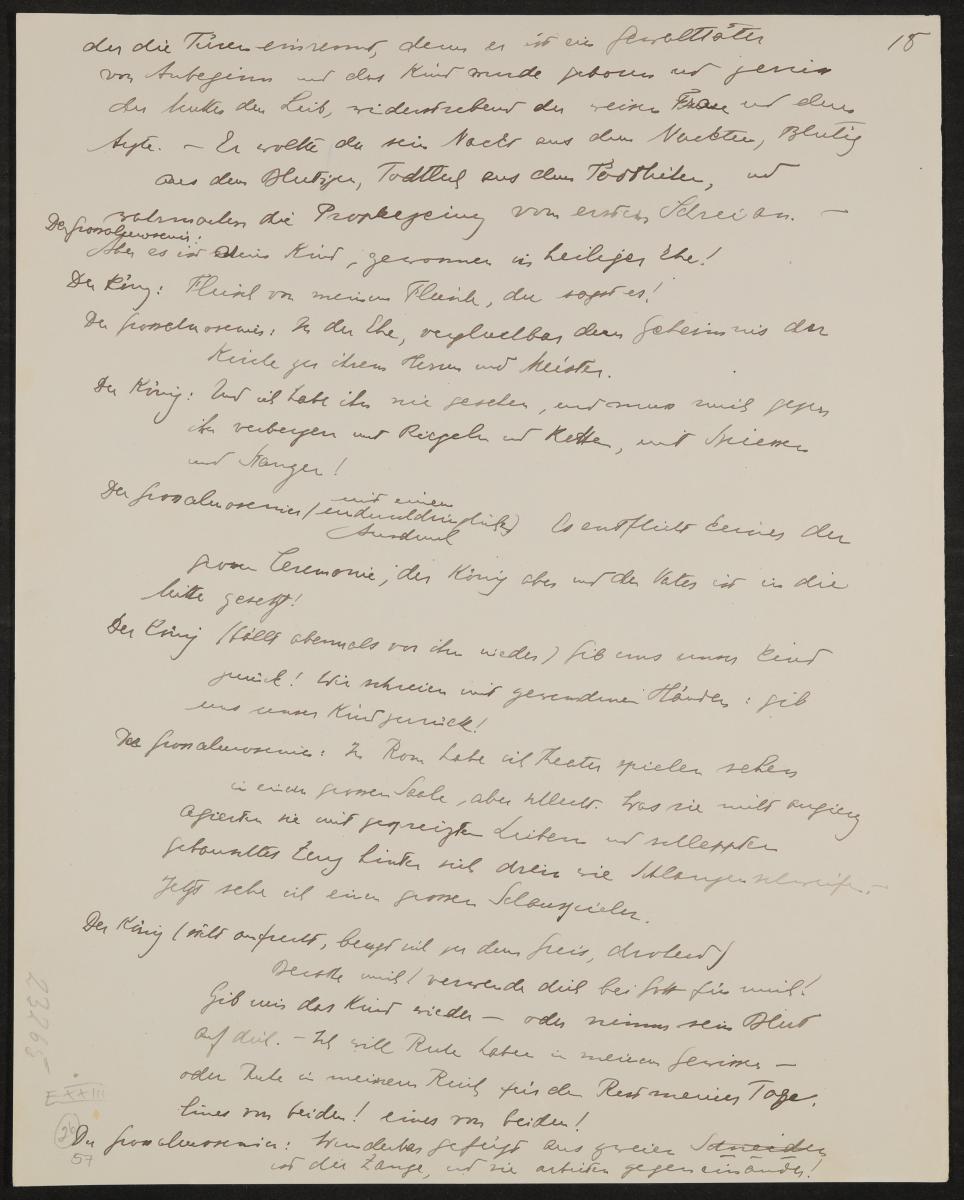 18
der die Türen einrennt, denn er ist ein Gewalttäter
von Anbeginn und das Kind wurde geboren und zerriss
der Mutter den Leib, widerstrebend der weisen Frau und dem
Arzte. – Er wollte da sein Nackt aus dem Nackten, Blutig
aus dem Blutigen, Todtlich aus dem Todtlichen, und
wahrmachen die Prophezeiung vom ersten Schrei an. –
Der Grossalmosenier:
Aber es ist dein Kind, gewonnen in heiliger Ehe!
Der König: Fleisch von meinem Fleische, du sagst es!
Der Grossalmosenier: In der Ehe, vergleichbar dem Geheimnis der
Kirche zu ihrem Herrn und Meister.
Der König: Und ich habe ihn nie gesehen, und muss mich gegen
ihn verbergen mit Riegeln und Ketten, mit Spiessen
und Stangen!
Der Grossalmosenier (mit einem
undurchdringlichen)
Ausdruck
Es entflieht keiner der
grossen Ceremonie; der König aber und der Vater ist in die
Mitte gesetzt!
Der König (fällt abermals vor ihm nieder) Gib uns unser Kind
zurück! Wir schreien mit gewundenen Händen: gib
uns unser Kind zurück!
Der Grossalmosenier: In Rom habe ich Theater spielen sehen
in einem grossen Saale, aber schlecht. Was sie nicht anging
agierten sie mit gespreizten Leibern und schleppten
gebauschtes Zeug hinter sich drein wie Schlangenschweife. –
Jetzt sehe ich einen grossen Schauspieler.
Der König (steht aufrecht, beugt sich zu dem Greis, drohend)
Berate mich! verwende dich bei Gott für mich!
Gib mir das Kind wieder – oder nimm sein Blut
auf dich. – Ich will Ruhe haben in meinem Gewissen –
oder Ruhe in meinem Reich für den Rest meiner Tage.
Eines von beiden! eines von beiden!
Der Grossalmosenier: Wunderbar gefügt aus zweien Schneiden
ist die Zange, und sie arbeiten gegen einander!
23265
E XXIII
26
57